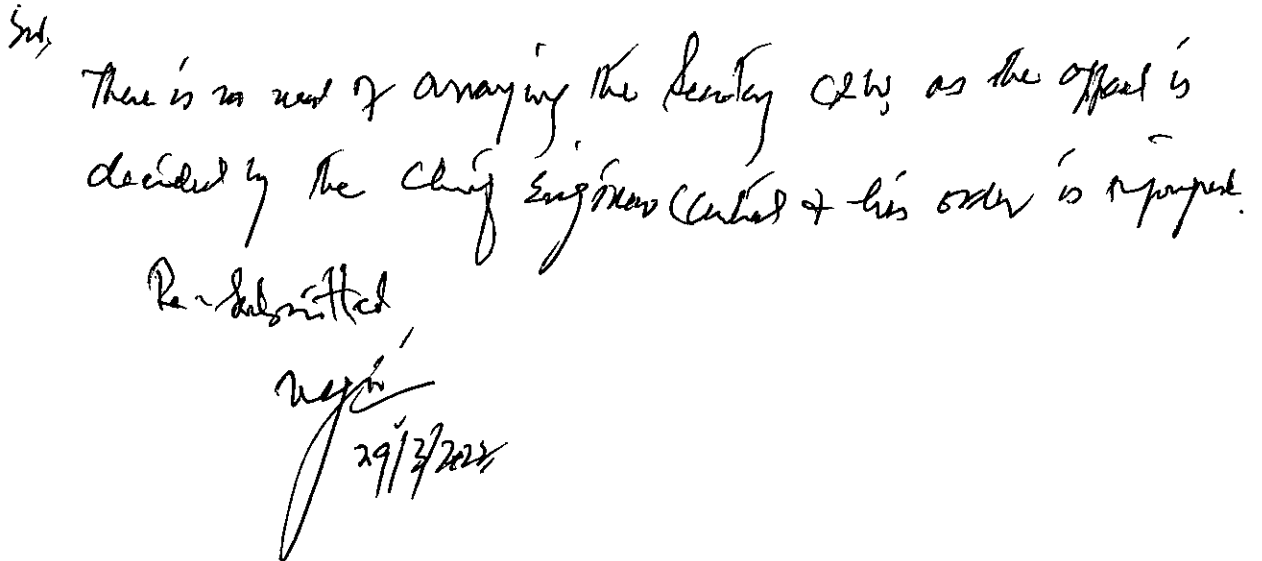 Sir,
There is no need of arraying the Secretary C&W, as the appeal is
decided by the Chief Engineer (Central & his order is impugned.
Re-Submitted
29/3/2022